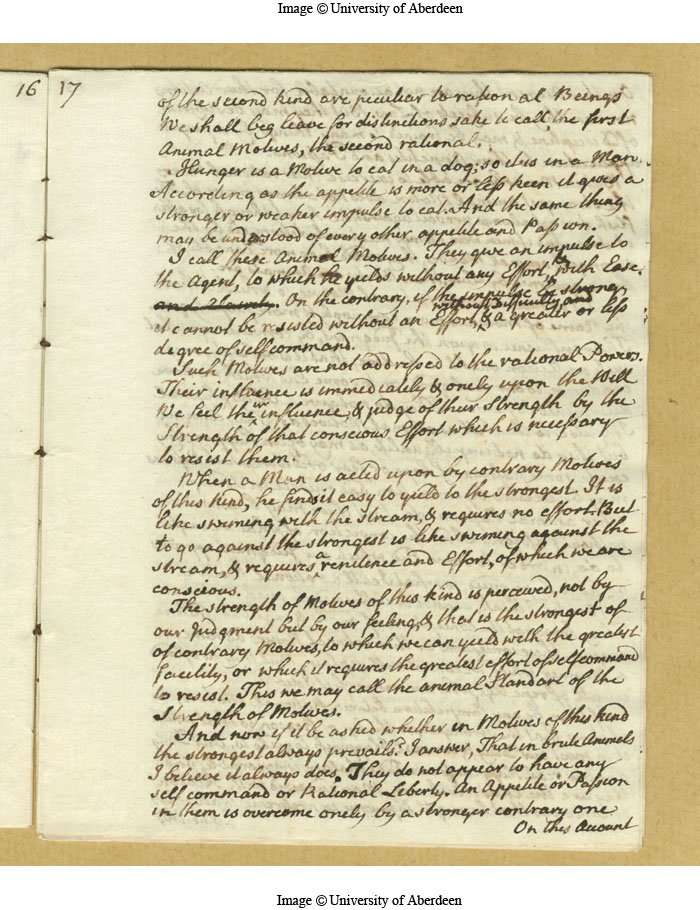 Image © University of Aberdeen
16
17
of the second kind are peculiar to ration al Beings
We shall beg leave for distinctions sake to call the first
Animal Motives, the second rational.
Hunger is a Motive to eat in a dog; so it is in a Man.
According as the appetite is more or less keen it gives a
stronger or weaker impulse to eat. And the same thing
may be understood of every other appetite and Passion.
I call these Animal Motives. They give an impulse to
the Agent, to which he yields without any Effort, & with Ease.
and Pleasure. On the contrary, if the impulse be strong
without Difficulty and
it cannot be resisted without an Effort, & a greater or less
degree of self command.
Such Motives are not addressed to the rational Powers.
Their influence is immediately & onely upon the Will
We feel their influence, & judge of their Strength by the
Strength of that conscious Effort which is necessary
to resist them.
When a Man is acted upon by contrary Motives
of this kind, he finds it easy to yield to the strongest. It is
like swiming with the stream, & requires no effort. But
to go against the strongest is like swiming against the
stream, & requires a renitence and Effort, of which we are
conscious.
The strength of Motives of this kind is perceived, not by
our Judgment but by our feeling, & that is the strongest of
of contrary Motives, to which we can yield with the greatest
facility, or which it requires the greatest effort of self command
to resist. This we may call the animal Standart of the
Strength of Motives.
And now if it be asked whether in Motives of this kind
the strongest always prevails? I answer, That in brute Animals
I believe it always does. They do not appear to have any
self command or Rational Liberty. An Appetite or Passion
in them is overcome onely by a stronger contrary one
On this Account
Image © University of Aberdeen